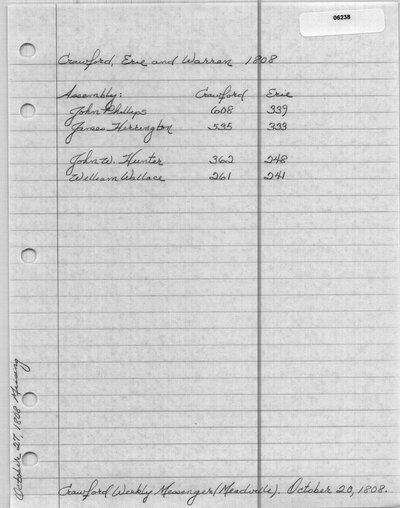 06238
Crawford, Erie and Warren 1808
Assembly: Crawford Erie
John Phillips 608 339
James Herrington 535 333
John W. Hunter 362 248
William Wallace 261 241
October 27, 1808 Missing
Crawford Weekly Messenger (Meadville). October 20, 1808.